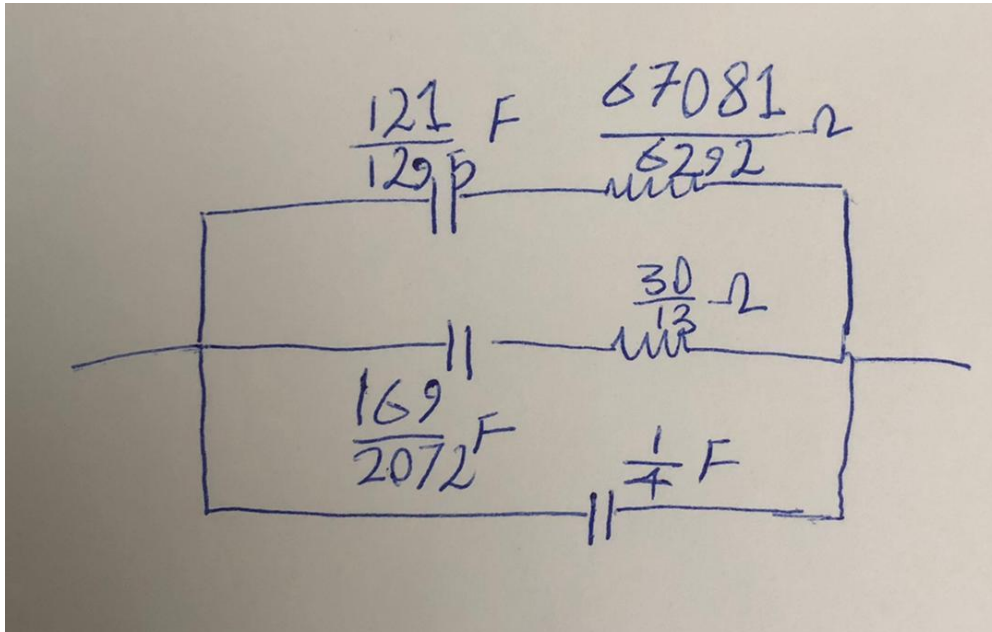 121/1295 F
67081/6292 Ω
30/13 Ω
169/2072 F
1/4 F